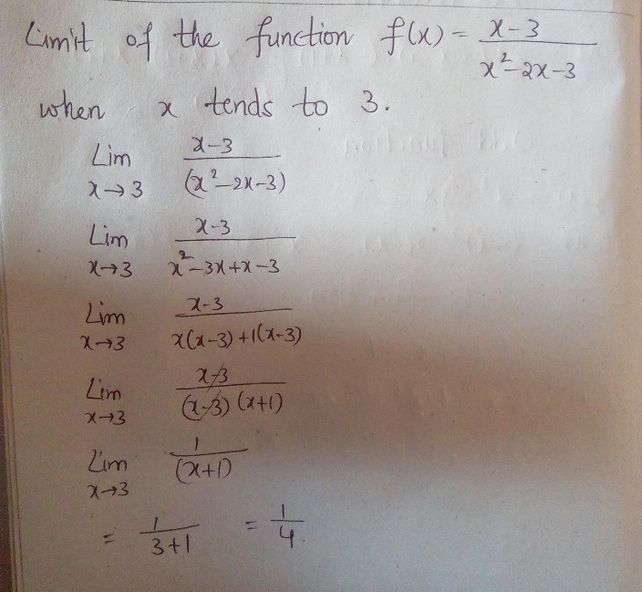 Limit of the function f(x) = x-3 / x²-2x-3
when x tends to 3.
Lim x→3 x-3 / (x²-2x-3)
Lim x→3 x-3 / x²-3x+x-3
Lim x→3 x-3 / x(x-3)+1(x-3)
Lim x→3 x-3 / (x-3)(x+1)
Lim x→3 1 / (x+1)
= 1 / 3+1 = 1 / 4.